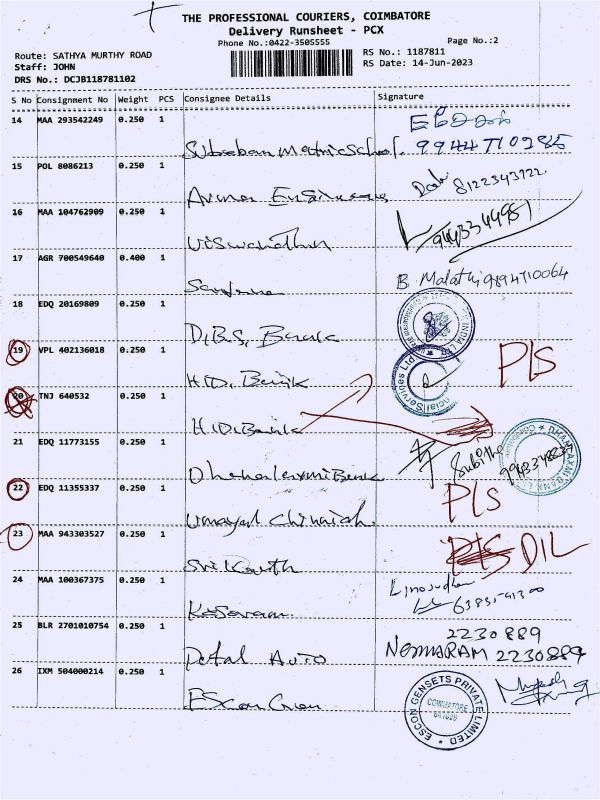 THE PROFESSIONAL COURIERS, COIMBATORE
Delivery Runsheet - PCX
Phone No.:0422-3505555
Page No.:2
Route: SATHYA MURTHY ROAD
Staff: JOHN
DRS No.: DCJB118781102
RS No.: 1187811
RS Date: 14-Jun-2023
S No Consignment No Weight PCS Consignee Details Signature
14 MAA 293542249 0.250 1
Matric School.
15 POL 8086213 0.250 1
8122343122
16 MAA 104762909 0.250 1
Viswanathan
17 AGR 700549640 0.400 1
B. Malathi 9894710064
18 EDQ 20169809 0.250 1
D.B.S, Bank
19 VPL 402136018 0.250 1
H.D. Bank
PLS
20 TNJ 640532 0.250 1
H.D. Bank
21 EDQ 11773155 0.250 1
Dhanalaxmi Bank
Subitha
DHANLAXMI BANK LTD
22 EDQ 11355337 0.250 1
Umayal
PLS
23 MAA 943303527 0.250 1
Srikanth
DIL
24 MAA 100367375 0.250 1
Kesavan
25 BLR 2701010754 0.250 1
2230889
Petal Auto
NEMARAM 2230889
26 IXM 504000214 0.250 1
Escon Gen
ESCON GENSETS PRIVATE LIMITED
COIMBATORE